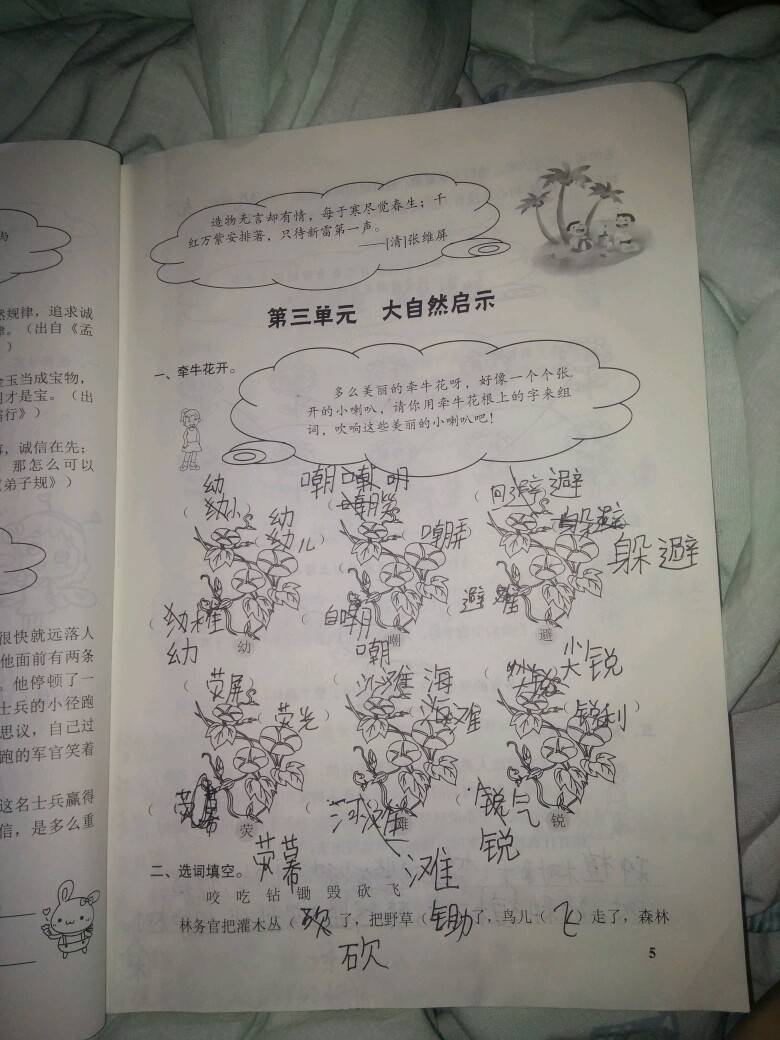 与
然规律，追求诚
律。（出自《孟
）
金玉当成宝物，
才是宝。（出
行》）
，诚信在先；
那怎么可以
《弟子规》）
很快就远落人
他面前有两条
。他停顿了一
士兵的小径跑
思议，自己过
跑的军官笑着
这名士兵赢得
信，是多么重
造物无言却有情，每于寒尽觉春生；千
红万紫安排著，只待新雷第一声。
——[清]张维屏
第三单元 大自然启示
一、牵牛花开。
多么美丽的牵牛花呀，好像一个个张
开的小喇叭，请你用牵牛花根上的字来组
词，吹响这些美丽的小喇叭吧！
幼 嘲 嘲
（幼小 （嘲笑 （回避 避
幼
幼儿） 嘲弄 躲避
躲避
（幼稚 自嘲 避难
幼 嘲 避
幼 嘲
（荧屏 沙滩 海 （尖锐 尖锐
（荧光 海滩 （锐利）
（荧幕 （河滩 （锐气
荧 滩 锐
荧幕 滩 锐
二、选词填空。
咬 吃 钻 锄 毁 砍 飞
林务官把灌木丛（砍）了，把野草（锄）了，鸟儿（飞）走了，森林
砍
5